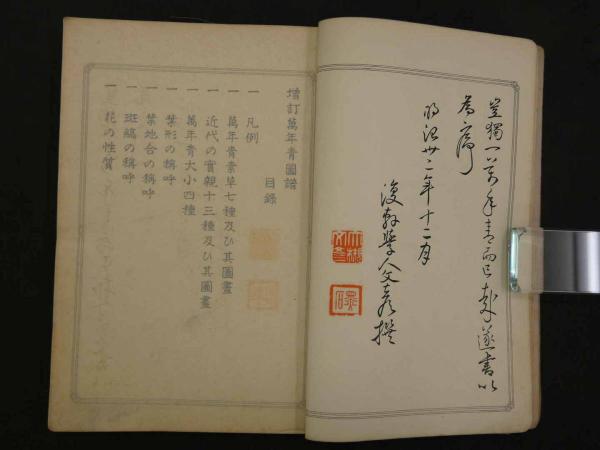 豈獨一萬年青而已哉遂書以
為序
明治卅二年十二月
復軒學人文彦撰
增訂萬年青圖譜
目錄
一 凡例
一 萬年青素草七種及ひ其圖畫
一 近代の實親十三種及ひ其圖畫
一 萬年青大小四種
一 葉形の稱呼
一 葉地合の稱呼
一 斑縞の稱呼
一 花の性質